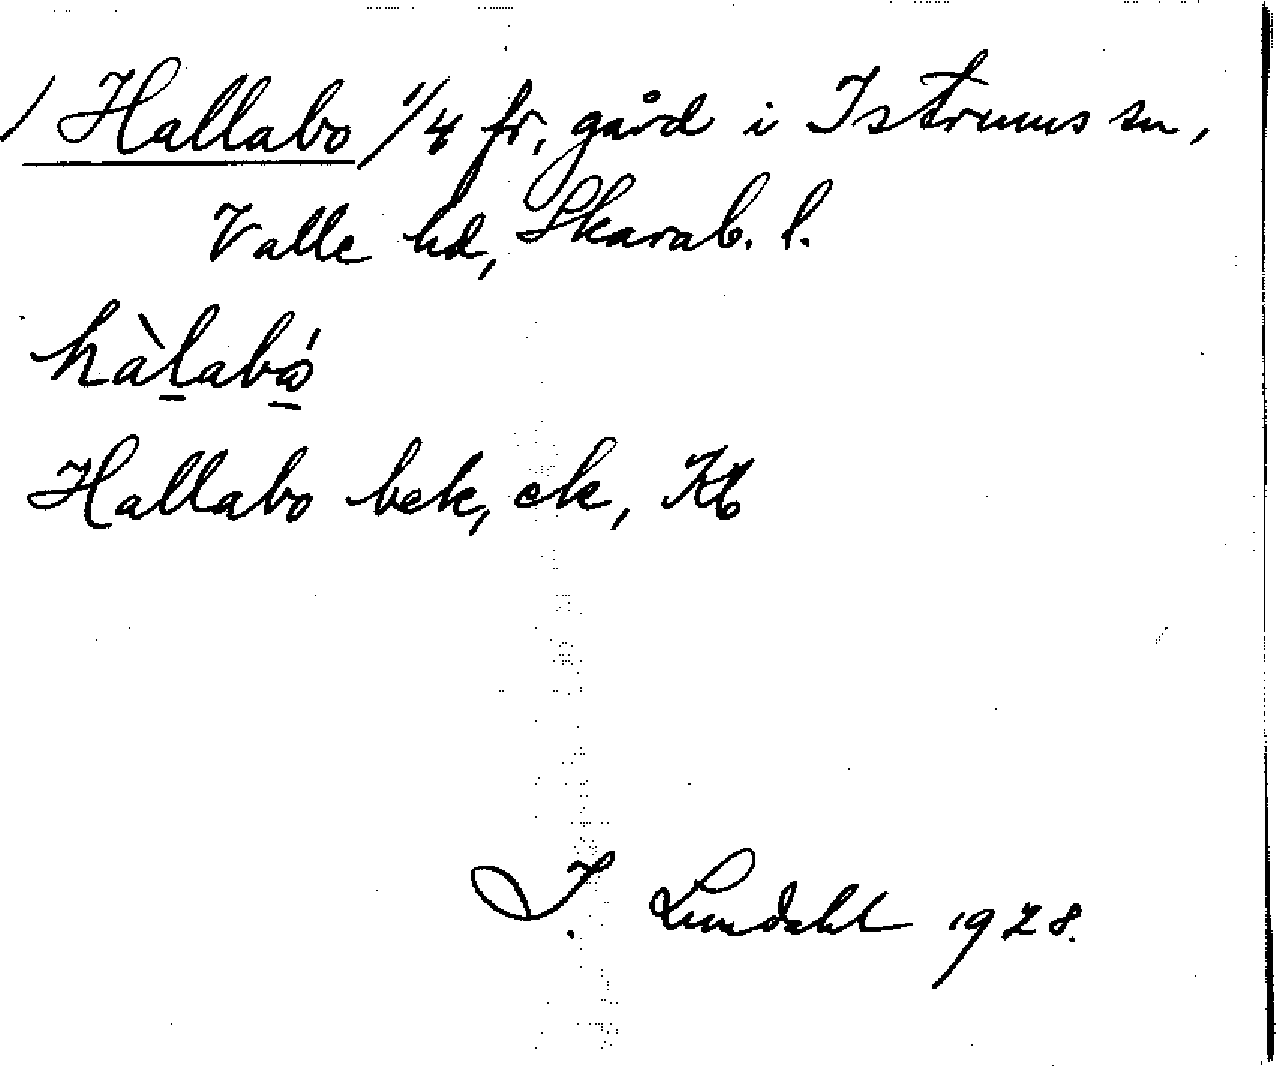 / Hallabo 1/4 fr, gård i Istrums sn,
Valle hd, Skarab. l.
hàlabó
Hallabo bek, ek, Kb
I. Lundahl 1928.